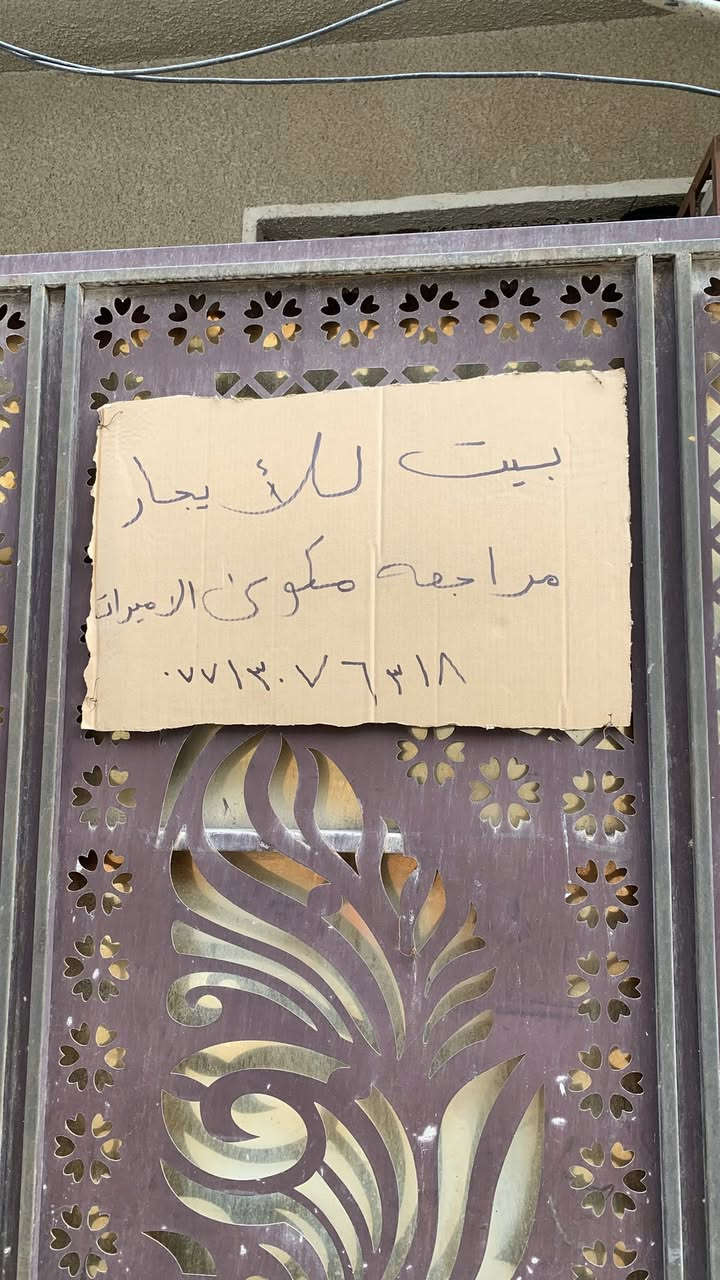 بيت للأيجار
مراجعه مكوى الاميرات
٠٧٧١٣٠٧٦٣١٨